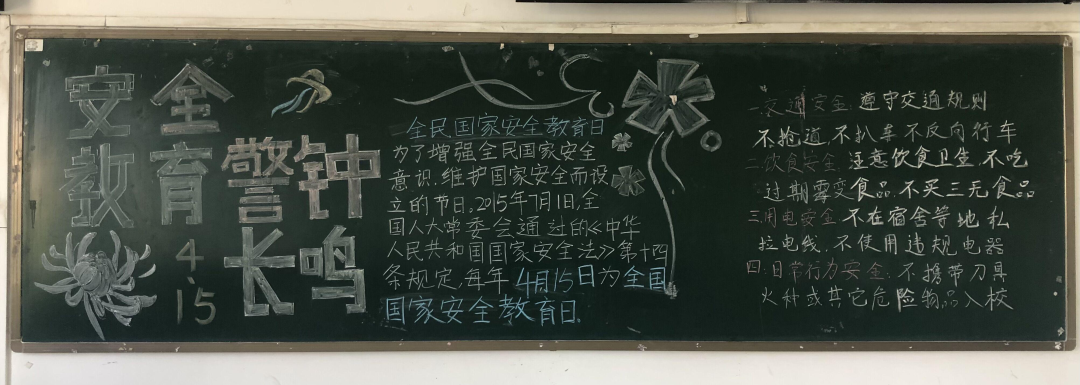 安全
教育
警钟
长鸣
4.15
全民国家安全教育日
为了增强全民国家安全
意识,维护国家安全而设
立的节日。2015年7月1日,全
国人大常委会通过的《中华
人民共和国国家安全法》第十四
条规定,每年4月15日为全国
国家安全教育日.
一.交通安全:遵守交通规则
不抢道,不扒车,不反向行车
二.饮食安全:注意饮食卫生,不吃
过期霉变食品,不买三无食品
三.用电安全:不在宿舍等地私
拉电线,不使用违规电器
四:日常行为安全:不携带刀具
火种或其它危险物品入校